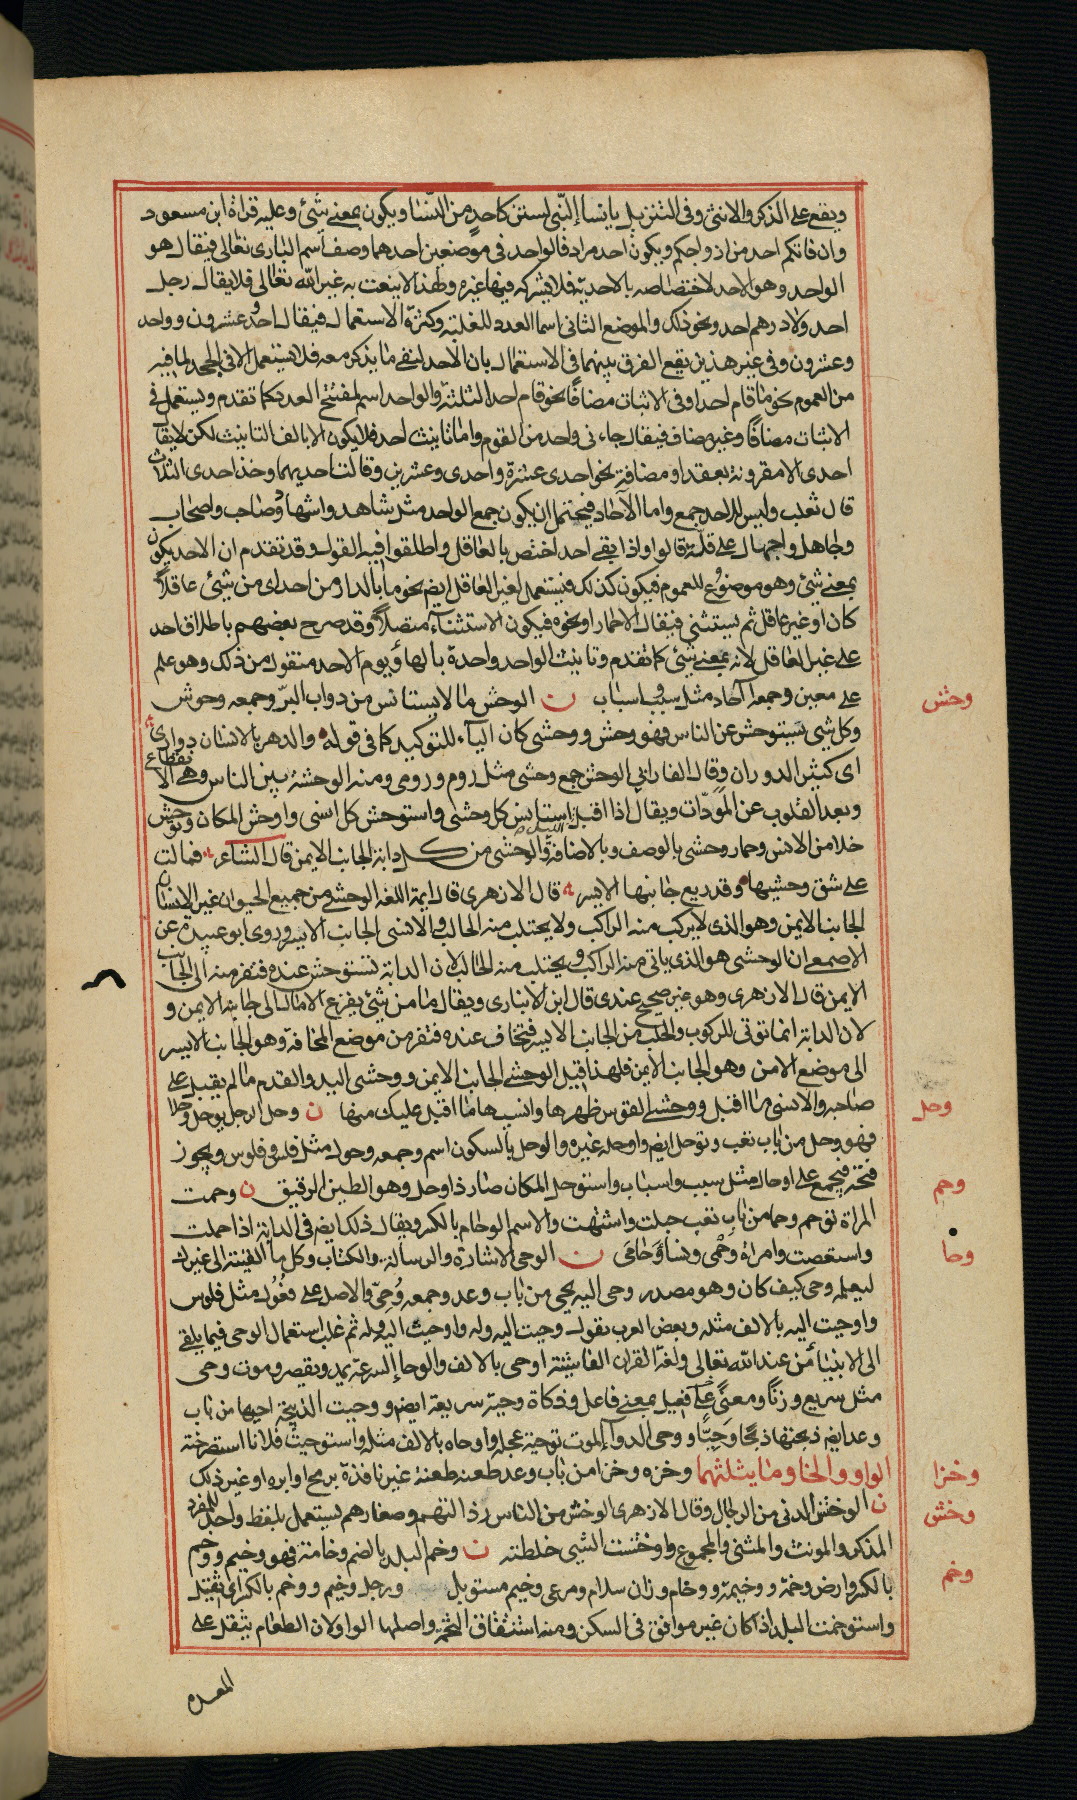 ويقع على الذكر والانثى وفى التنزيل يا نساء النبى لستن كاحد من النساء ويكون بمعنى شئ وعليه قراة ابن مسعود
وان فاتكم احد من ازواجكم ويكون احد مرادفا لواحد فى موضعين احدهما وصف اسم البارى تعالى فيقال هو
الواحد وهو الاحد لاختصاصه بالاحدية فلا يشركه فيها غيره ولهذا لا ينعت به غير الله تعالى فلا يقال رجل
احد ولا درهم احد ونحو ذلك والموضع الثانى اسما العدد للغلبة وكثرة الاستعمال فيقال احد وعشرون وواحد
وعشرون وفى غير هذين يقع الفرق بينهما فى الاستعمال بان الاحد لنفى ما يذكر معه فلا يستعمل الا فى الجحد لما فيه
من العموم نحو ما قام احد او فى الاثبات مضافا نحو قام احد الثلثة والواحد اسم لمفتتح العدد كما تقدم ويستعمل فى
الاثبات مضافا وغير مضاف فيقال جاءنى واحد من القوم واما تانيث احد فلا يكون الا بالف التانيث لكن لا يقال
احدى الا مقرونة بعقد او مضافة نحو احدى عشرة واحدى وعشرين وقالت احديهما وخذ احدى الثلاث
قال ثعلب وليس للاحد جمع واما الآحاد فيحتمل ان يكون جمع الواحد مثل شاهد واشهاد وصاحب واصحاب
وجاهل واجهال على قلة قالوا واذا بقى احد اختص بالعاقل واطلقوا فيه القول وقد تقدم ان الاحد يكون
بمعنى شئ وهو موضوع للعموم فيكون كذلك فيستعمل لغير العاقل ايض نحو ما بالدار من احد اى من شئ عاقلا
كان او غير عاقل ثم يستثنى فيقال الا حمار او نحوه فيكون الاستثناء متصلا وقد صرح بعضهم باطلاق احد
على غير العاقل لانه بمعنى شئ كما تقدم وتانيث الواحد واحدة بالهاء ويوم الاحد منقول من ذلك وهو علم
على معين وجمعه آحاد مثل سبب واسباب ن الوحش ما لا يستانس من دواب البر وجمعه وحوش
وكل شى يستوحش عن الناس فهو وحش ووحشى كان الياء للتوكيد كما فى قوله والدهر بالانسان دوارى
اى كثير الدوران وقال الفارابى الوحش جمع وحشى مثل روم ورومى ومنه الوحشة بين الناس وهى الا نقطاع
وبعد القلوب عن المودات ويقال اذا اقبل الليل استانس كل وحشى واستوحش كل انسى واوحش المكان وتوحش
خلا من الانس وحمار وحشى بالوصف وبالاضافة والوحشى من كل دابة الجانب الايمن قال الشاعر فمالت
على شق وحشيها وقد ريع جانبها الايسر قال الازهرى قال ايمة اللغة الوحشى من جميع الحيوان غير الانسان
الجانب الايمن وهو الذى لا يركب منه الراكب ولا يحتلب منه الحالب والانسى الجانب الايسر وروى ابو عبيدة عن
الاصمعى ان الوحشى هو الذى ياتى منه الراكب ويحتلب منه الحالب لان الدابة تستوحش عنده فتفر منه الى الجانب
الايمن قال الازهرى وهو غير صحيح عندى قال ابن الانبارى ويقال ما من شئ يفزع الا مال الى جانبه الايمن و
لان الدابة انما توتى للركوب والحلب من الجانب الايسر فتخاف عنده فتفر من موضع المخافة وهو الجانب الايسر
الى موضع الامن وهو الجانب الايمن فلهذا قيل الوحشى الجانب الايمن ووحشى اليد والقدم ما لم يقبل على
صاحبه والانسى ما اقبل ووحشى القوس ظهرها وانسيها ما اقبل عليك منها ن وحل الرجل يوحل وحلا
فهو وحل من باب تعب وتوحل ايض واوحله غيره والوحل بالسكون اسم وجمعه وحول مثل فلس وفلوس ويجوز
فتحه فيجمع على اوحال مثل سبب واسباب واستوحل المكان صار ذا وحل وهو الطين الرقيق ن وحمت
المراة توحم وحما من باب تعب حبلت واشتهت والاسم الوحام بالكسر ويقال ذلك ايض فى الدابة اذا حملت
واستعصت وامراة وحمى ونساء وحامى ن الوحى الاشارة والرسالة والكتاب وكل ما القيته الى غيرك
ليعلمه وحى كيف كان وهو مصدر وحى اليه يحى من باب وعد وجمعه وحى والاصل على فعول مثل فلوس
واوحيت اليه بالالف مثله وبعض العرب يقول وحيت اليه وله واوحيت اليه وله ثم غلب استعمال الوحى فيما يلقى
الى الانبياء من عند الله تعالى ولغة القران الفاشية اوحى بالالف والوحا السرعة يمد ويقصر وموت وحى
مثل سريع وزنا ومعنى على فعيل بمعنى فاعل وذكاة وحية سريعة ايض ووحيت الذبيحة احيها من باب
وعد ايض ذبحتها ذبحا وحيا ووحى الدواء الموت توحية عجله واوحاه بالالف مثله واستوحيت فلانا استصرخته
الواو والخا وما يثلثهما وخزه وخزا من باب وعد طعنه طعنة غير نافذة برمح او ابره او غير ذلك
ن الوخش الدنى من الرجال وقال الازهرى الوخش من الناس رذالتهم وصغارهم يستعمل بلفظ واحد للمفرد
المذكر والمونث والمثنى والمجموع واوخشت الشى خلطته ن وخم البلد بالضم وخامة فهو وخيم ووخم
بالكسر وارض وخمة ووخيمة ووخام وزان سلام ومرعى وخيم مستوبل ورجل وخيم ووخم بالكسر اى ثقيل
واستوخمت البلد اذا كان غير موافق فى السكن ومنه اشتقاق التخمة واصلها الواو لان الطعام يثقل على
المعده
وحش
وحل
وحم
وحا
وخزا
وخش
وخم